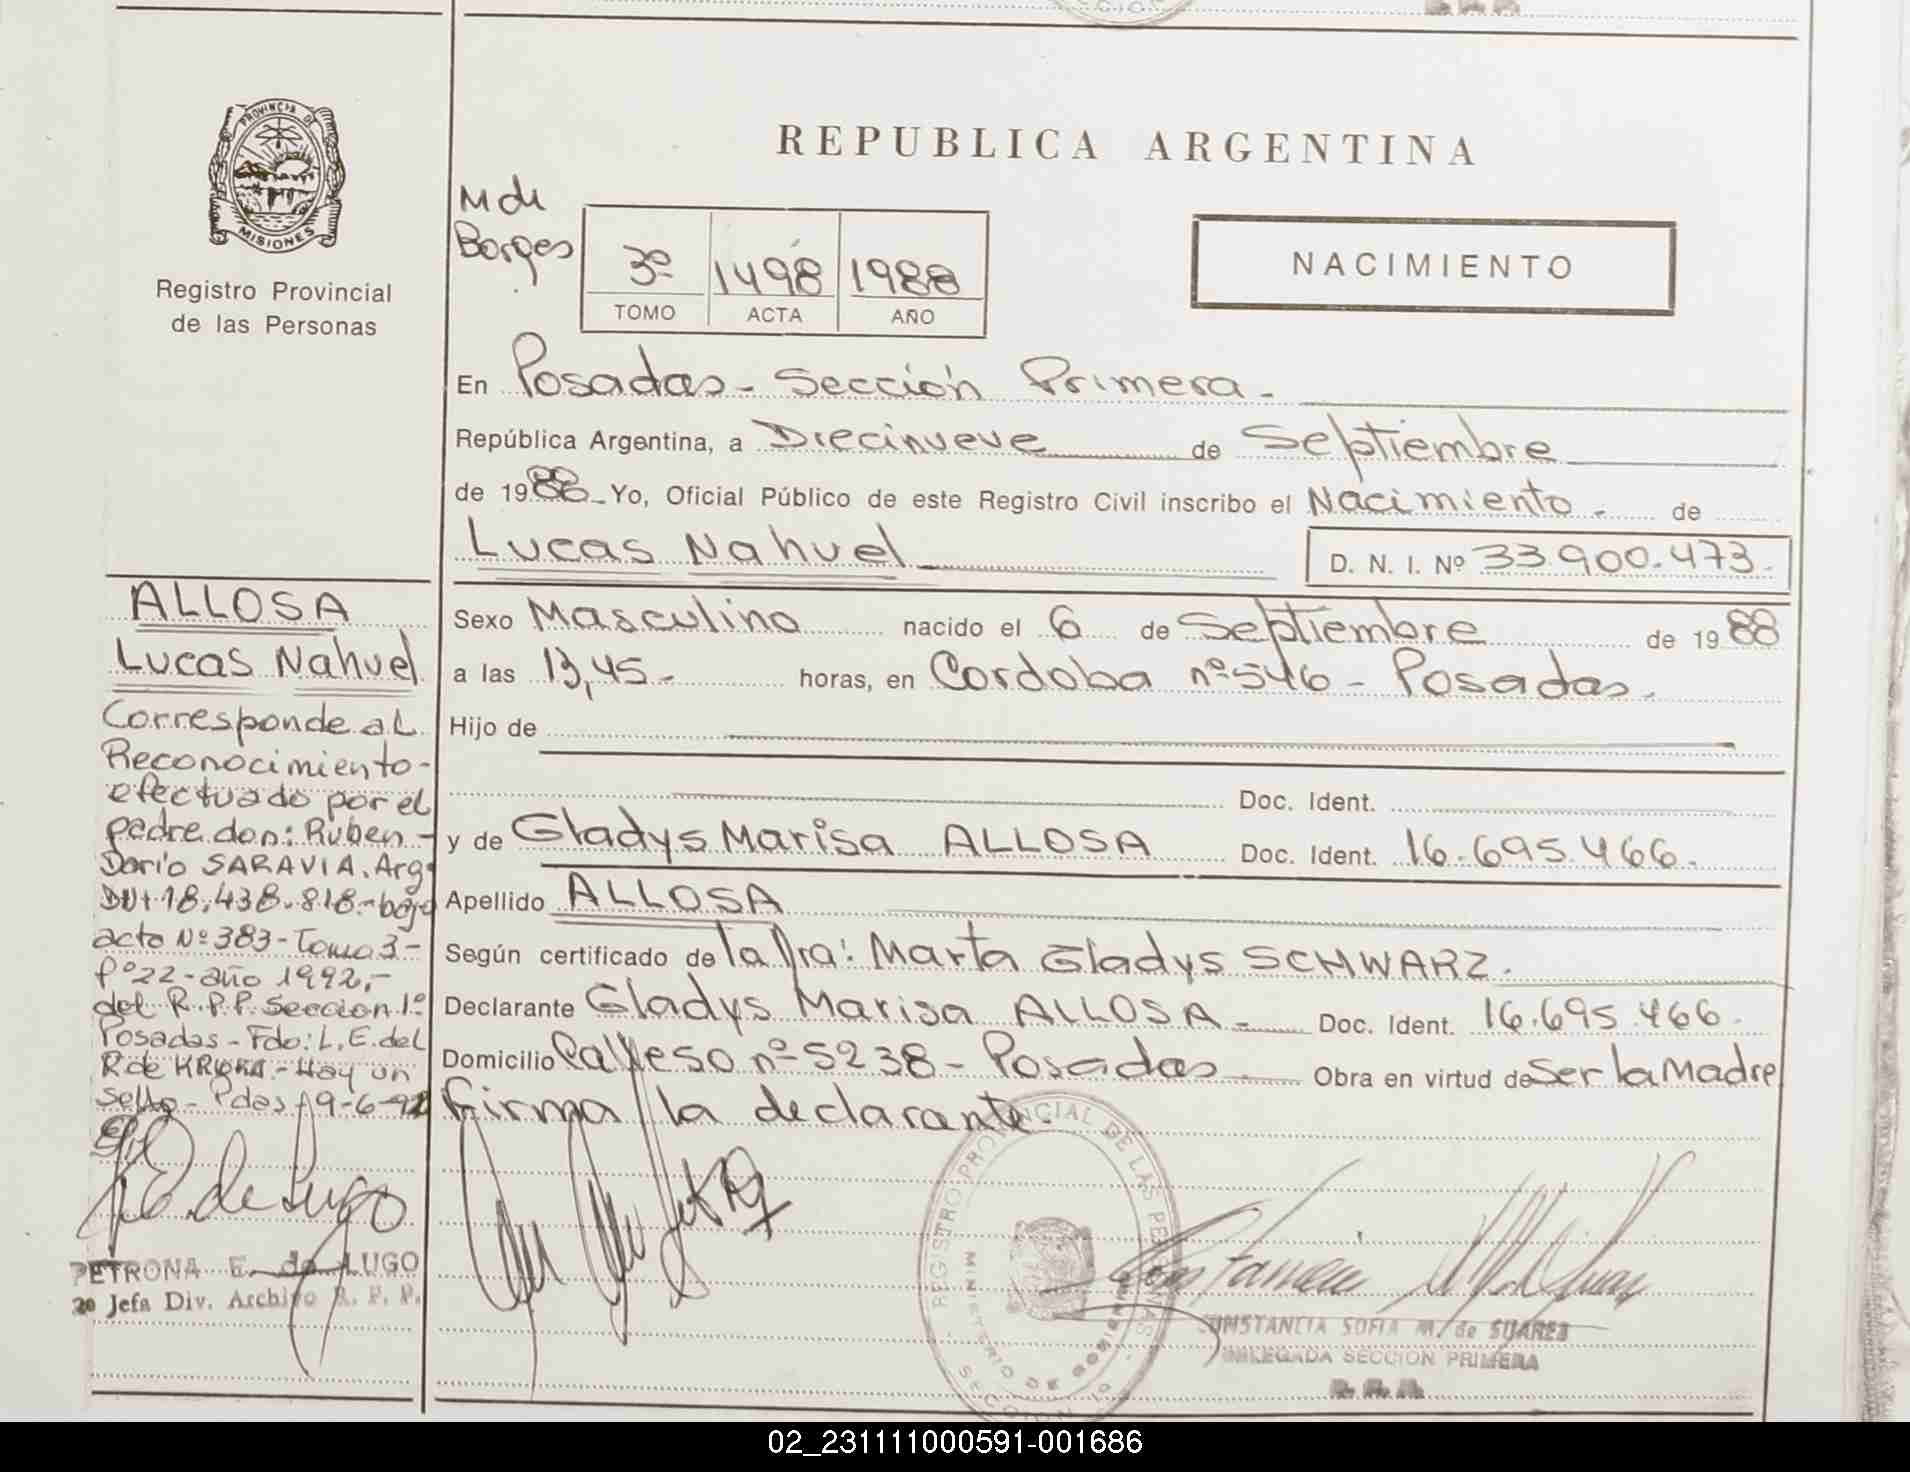 PROVINCIA DE
MISIONES
Registro Provincial
de las Personas
REPUBLICA ARGENTINA
M de
Borges
3º 1498 1988
TOMO ACTA AÑO
NACIMIENTO
En Posadas - Sección Primera -
República Argentina, a Diecinueve de Septiembre
de 1988 - Yo, Oficial Público de este Registro Civil inscribo el Nacimiento - de
Lucas Nahuel D. N. I. Nº 33.900.473.
Sexo Masculino nacido el 6 de Septiembre de 1988
a las 13,45.- horas, en Cordoba nº 546 - Posadas.
Hijo de
Doc. Ident.
y de Gladys Marisa ALLOSA Doc. Ident. 16.695.466.
Apellido ALLOSA
Según certificado de la Dra: Marta Gladys SCHWARZ.
Declarante Gladys Marisa ALLOSA - Doc. Ident. 16.695.466.
Domicilio nº 5238 - Posadas Obra en virtud de Ser la Madre
Firma la declarante.
ALLOSA
Lucas Nahuel
Corresponde al
Reconocimiento -
efectuado por el
padre don: Ruben -
Dario SARAVIA. Arg.
DNI 18.438.818.- bajo
acta Nº 383 - Tomo 3 -
Fº 22 - año 1992,-
del R.P.P. Seccion 1º
Posadas - Fdo: L. E. del
R de - Hay un
Sello - Pdas 19-6-92
PETRONA E. de LUGO
Jefa Div. Archivo R. P. P.
REGISTRO PROVINCIAL DE LAS PERSONAS
MINISTERIO DE GOBIERNO
SECCION 1º
CONSTANCIA SOFIA M. de SUAREZ
DELEGADA SECCION PRIMERA
R. P. P.
02_231111000591-001686